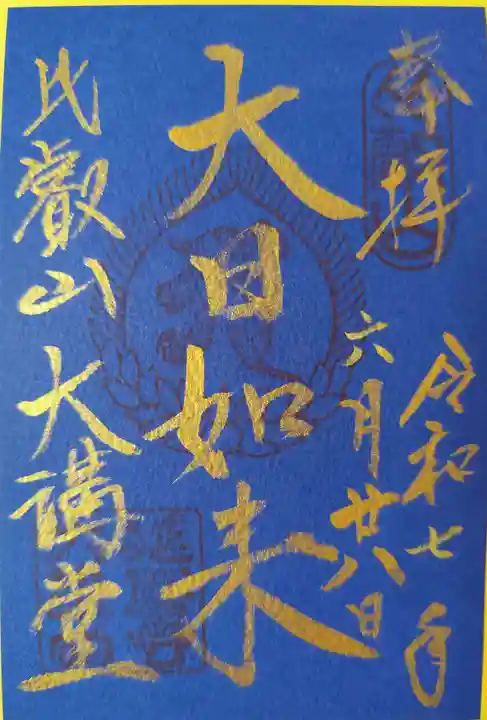 奉拝
令和七年
六月廿八日
大日如来
比叡山
大講堂